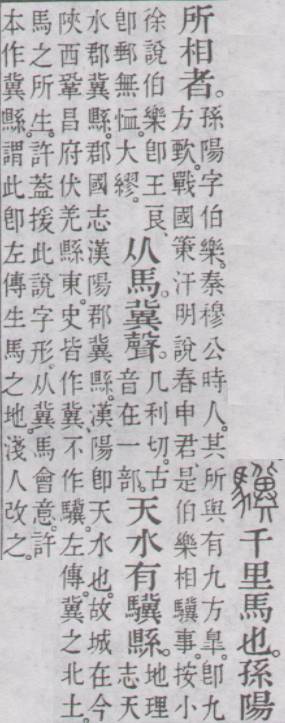 驥千里馬也。孫陽
所相者。孫陽字伯樂。秦穆公時人。其所與有九方皐。卽九
方歅。戰國策汗明說春申君、是伯樂相驥事。按小
徐說伯樂卽王良、
卽郵無恤。大繆。从馬。冀聲。几利切。古
音在一部。天水有驥縣。地理
志天
水郡冀縣。郡國志漢陽郡冀縣。漢陽卽天水也。故城在今
陝西鞏昌府伏羌縣東。史皆作冀、不作驥。左傳。冀之北土。
馬之所生。許葢援此說字形。从冀馬會意。許
本作冀縣。謂此卽左傳生馬之地。淺人改之。